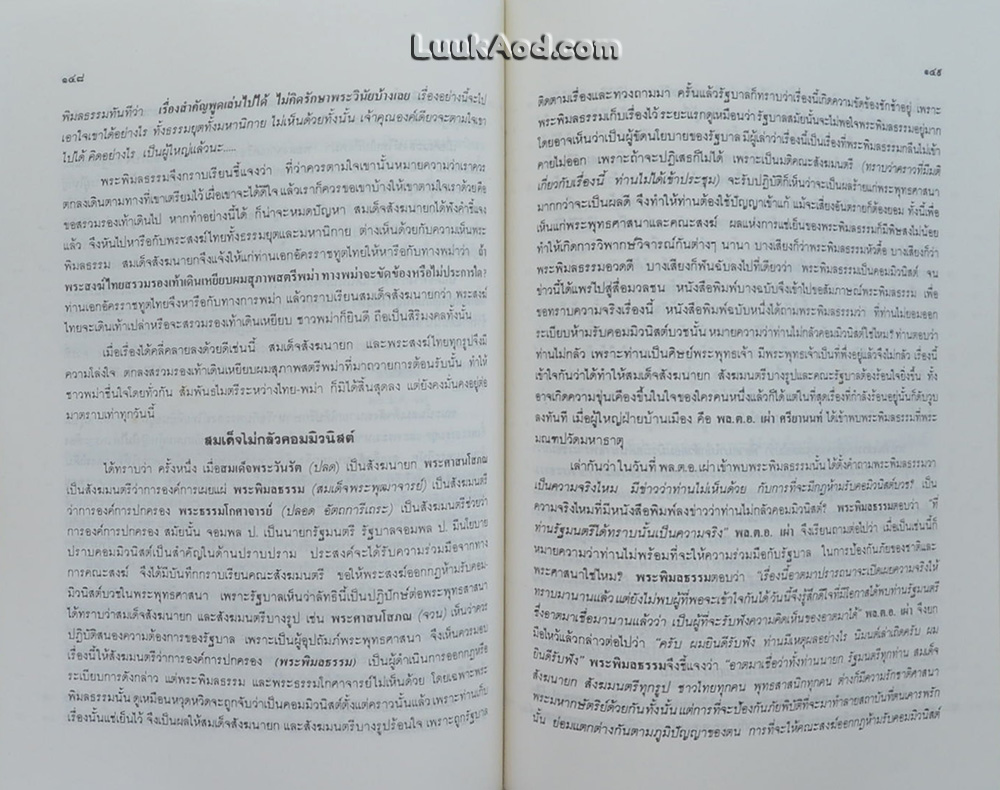 LuukAod.com
๑๔๘
พิมลธรรมทันทีว่า เรื่องสำคัญพูดเล่นไปได้ ไม่คิดรักษาพระวินัยบ้างเลย เรื่องอย่างนี้จะไป
เอาใจเขาได้อย่างไร ทั้งธรรมยุตทั้งมหานิกาย ไม่เห็นด้วยทั้งนั้น เจ้าคุณองค์เดียวจะตามใจเขา
ไปได้ คิดอย่างไร เป็นผู้ใหญ่แล้วนะ.....
พระพิมลธรรมจึงกราบเรียนชี้แจงว่า ที่ว่าควรตามใจเขานั้นหมายความว่าเราควร
ตกลงเดินตามทางที่เขาเตรียมไว้ เผื่อเขาจะได้ดีใจ แล้วเราก็ควรขอเขาบ้างให้เขาตามใจเราด้วยคือ
ขอสรวมรองเท้าเดินไป หากทำอย่างนี้ได้ ก็น่าจะหมดปัญหา สมเด็จสังฆนายกได้ฟังคำชี้แจง
แล้ว จึงหันไปหารือกับพระสงฆ์ไทยทั้งธรรมยุตและมหานิกาย ต่างเห็นด้วยกับความเห็นพระ
พิมลธรรม สมเด็จสังฆนายกจึงแจ้งให้แก่ท่านเอกอัครราชทูตไทยให้หารือกับทางพม่าว่า ถ้า
พระสงฆ์ไทยสรวมรองเท้าเดินเหยียบผมสุภาพสตรีพม่า ทางพม่าจะขัดข้องหรือไม่ประการใด?
ท่านเอกอัครราชทูตไทยจึงหารือกับทางพม่า แล้วกราบเรียนสมเด็จสังฆนายกว่า พระสงฆ์
ไทยจะเดินเท้าเปล่าหรือจะสรวมรองเท้าเดินเหยียบ ชาวพม่าก็ยินดี ถือเป็นสิริมงคลทั้งนั้น
เมื่อเรื่องได้คลี่คลายลงด้วยดีเช่นนี้ สมเด็จสังฆนายก และพระสงฆ์ไทยทุกรูปจึงมี
ความโล่งใจ ตกลงสรวมรองเท้าเดินเหยียบผมสุภาพสตรีพม่าที่มาถวายการต้อนรับนั้น ทำให้
ชาวพม่าชื่นใจโดยทั่วกัน สัมพันธไมตรีระหว่างไทย-พม่า ก็มิได้สิ้นสุดลง แต่ยังคงมั่นคงอยู่ต่อ
มาตราบเท่าทุกวันนี้
สมเด็จไม่กลัวคอมมิวนิสต์
ได้ทราบว่า ครั้งหนึ่ง เมื่อสมเด็จพระวันรัต (ปลด) เป็นสังฆนายก พระศาสนโสภณ
เป็นสังฆมนตรีว่าการองค์การเผยแผ่ พระพิมลธรรม (สมเด็จพระพุฒาจารย์) เป็นสังฆมนตรี
ว่าการองค์การปกครอง พระธรรมโกศาจารย์ (ปลอด อัตถการีเถระ) เป็นสังฆมนตรีช่วยว่า
การองค์การปกครอง สมัยนั้น จอมพล ป. เป็นนายกรัฐมนตรี รัฐบาลจอมพล ป. มีนโยบาย
ปราบคอมมิวนิสต์เป็นสำคัญในด้านปราบปราม ประสงค์จะได้รับความร่วมมือจากทาง
การคณะสงฆ์ จึงได้มีบันทึกกราบเรียนคณะสังฆมนตรี ขอให้พระสงฆ์ออกกฎห้ามรับคอม-
มิวนิสต์บวชในพระพุทธศาสนา เพราะรัฐบาลเห็นว่าลัทธินี้เป็นปฏิปักษ์ต่อพระพุทธศาสนา
ได้ทราบว่าสมเด็จสังฆนายก และสังฆมนตรีบางรูป เช่น พระศาสนโสภณ (จวน) เห็นว่าควร
ปฏิบัติสนองความต้องการของรัฐบาล เพราะเป็นผู้อุปถัมภ์พระพุทธศาสนา จึงเห็นควรมอบ
เรื่องนี้ให้สังฆมนตรีว่าการองค์การปกครอง (พระพิมลธรรม) เป็นผู้ดำเนินการออกกฎหรือ
ระเบียบการดังกล่าว แต่พระพิมลธรรม และพระธรรมโกศาจารย์ไม่เห็นด้วย โดยเฉพาะพระ
พิมลธรรมนั้น ดูเหมือนหวุดหวิดจะถูกจับว่าเป็นคอมมิวนิสต์ตั้งแต่คราวนั้นแล้ว เพราะท่านเก็บ
เรื่องนั้นแช่เย็นไว้ จึงเป็นผลให้สมเด็จสังฆนายก และสังฆมนตรีบางรูปร้อนใจ เพราะถูกรัฐบาล
๑๔๙
ติดตามเรื่องและทวงถามมา ครั้นแล้วรัฐบาลก็ทราบว่าเรื่องนี้เกิดความขัดข้องชักช้าอยู่ เพราะ
พระพิมลธรรมเก็บเรื่องไว้ ระยะแรกดูเหมือนว่า รัฐบาลสมัยนั้นจะไม่พอใจพระพิมลธรรมอยู่มาก
โดยอาจเห็นว่าเป็นผู้ขัดนโยบายของรัฐบาล มีผู้เล่าว่าเรื่องนี้เป็นเรื่องที่พระพิมลธรรมกลืนไม่เข้า
คายไม่ออก เพราะถ้าจะปฏิเสธก็ไม่ได้ เพราะเป็นมติคณะสังฆมนตรี (ทราบว่าคราวที่มีมติ
เกี่ยวกับเรื่องนี้ ท่านไม่ได้เข้าประชุม) จะรับปฏิบัติก็เห็นว่าจะเป็นผลร้ายแก่พระพุทธศาสนา
มากกว่าจะเป็นผลดี จึงทำให้ท่านต้องใช้ปัญญาเข้าแก้ แม้จะเสี่ยงอันตรายก็ต้องยอม ทั้งนี้เพื่อ
เห็นแก่พระพุทธศาสนาและคณะสงฆ์ ผลแห่งการแช่เย็นของพระพิมลธรรมก็มีพิษสงไม่น้อย
ทำให้เกิดการวิพากษ์วิจารณ์กันต่างๆ นานา บางเสียงก็ว่าพระพิมลธรรมหัวดื้อ บางเสียงก็ว่า
พระพิมลธรรมอวดดี บางเสียงก็ฟันฉับลงไปทีเดียวว่า พระพิมลธรรมเป็นคอมมิวนิสต์ จน
ข่าวนี้ได้แพร่ไปสู่สื่อมวลชน หนังสือพิมพ์บางฉบับจึงเข้าไปขอสัมภาษณ์พระพิมลธรรม เพื่อ
ขอทราบความจริงเรื่องนี้ หนังสือพิมพ์ฉบับหนึ่งได้ถามพระพิมลธรรมว่า ที่ท่านไม่ยอมออก
ระเบียบห้ามรับคอมมิวนิสต์บวชนั้น หมายความว่าท่านไม่กลัวคอมมิวนิสต์ใช่ไหม? ท่านตอบว่า
ท่านไม่กลัว เพราะท่านเป็นศิษย์พระพุทธเจ้า มีพระพุทธเจ้าเป็นที่พึ่งอยู่แล้วจึงไม่กลัว เรื่องนี้
เข้าใจกันว่าได้ทำให้สมเด็จสังฆนายก สังฆมนตรีบางรูปและคณะรัฐบาลต้องร้อนใจยิ่งขึ้น ทั้ง
อาจเกิดความขุ่นเคืองขึ้นในใจของใครคนหนึ่งแล้วก็ได้ แต่ในที่สุดเรื่องที่กำลังร้อนอยู่นั้นก็ดับวูบ
ลงทันที เมื่อผู้ใหญ่ฝ่ายบ้านเมือง คือ พล.ต.อ. เผ่า ศรียานนท์ ได้เข้าพบพระพิมลธรรมที่พระ
มณฑปวัดมหาธาตุ
เล่ากันว่า ในวันที่ พล.ต.อ. เผ่า เข้าพบพระพิมลธรรมนั้น ได้ตั้งคำถามพระพิมลธรรมว่า
เป็นความจริงไหม มีข่าวว่าท่านไม่เห็นด้วย กับการที่จะมีกฎห้ามรับคอมมิวนิสต์บวช? เป็น
ความจริงไหมที่มีหนังสือพิมพ์ลงข่าวว่าท่านไม่กลัวคอมมิวนิสต์? พระพิมลธรรมตอบว่า "ที่
ท่านรัฐมนตรีได้ทราบนั้นเป็นความจริง" พล.ต.อ. เผ่า จึงเรียนถามต่อไปว่า เมื่อเป็นเช่นนี้ก็
หมายความว่าท่านไม่พร้อมที่จะให้ความร่วมมือกับรัฐบาล ในการป้องกันภัยของชาติและ
พระศาสนาใช่ไหม? พระพิมลธรรมตอบว่า "เรื่องนี้อาตมาปรารถนาจะเปิดเผยความจริงให้
ทราบมานานแล้ว แต่ยังไม่พบผู้ที่พอจะเข้าใจกันได้ วันนี้จึงรู้สึกดีใจที่มีโอกาสได้พบท่านรัฐมนตรี
ซึ่งอาตมาเชื่อมานานแล้วว่า เป็นผู้ที่จะรับฟังความคิดเห็นของอาตมาได้" พล.ต.อ. เผ่า จึงยก
มือไหว้แล้วกล่าวต่อไปว่า "ครับ ผมยินดีรับฟัง ท่านมีเหตุผลอย่างไร นิมนต์เล่าเถิดครับ ผม
ยินดีรับฟัง" พระพิมลธรรมจึงชี้แจงว่า "อาตมาเชื่อว่าทั้งท่านนายก รัฐมนตรีทุกท่าน สมเด็จ
สังฆนายก สังฆมนตรีทุกรูป ชาวไทยทุกคน พุทธสาสนิกทุกคน ต่างก็มีความรักชาติศาสนา
พระมหากษัตริย์ด้วยกันทั้งนั้น แต่การที่จะป้องกันภัยพิบัติที่จะมาทำลายสถาบันที่ตนเคารพรัก
นั้น ย่อมแตกต่างกันตามภูมิปัญญาของตน การที่จะให้คณะสงฆ์ออกกฎห้ามรับคอมมิวนิสต์